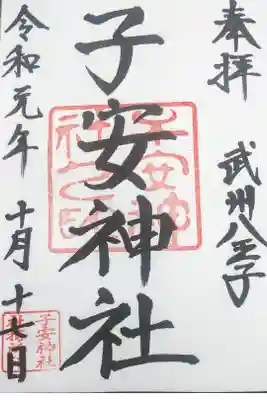 奉拝
武州八王子
子安神社
令和元年 十月 十七日
子安神社